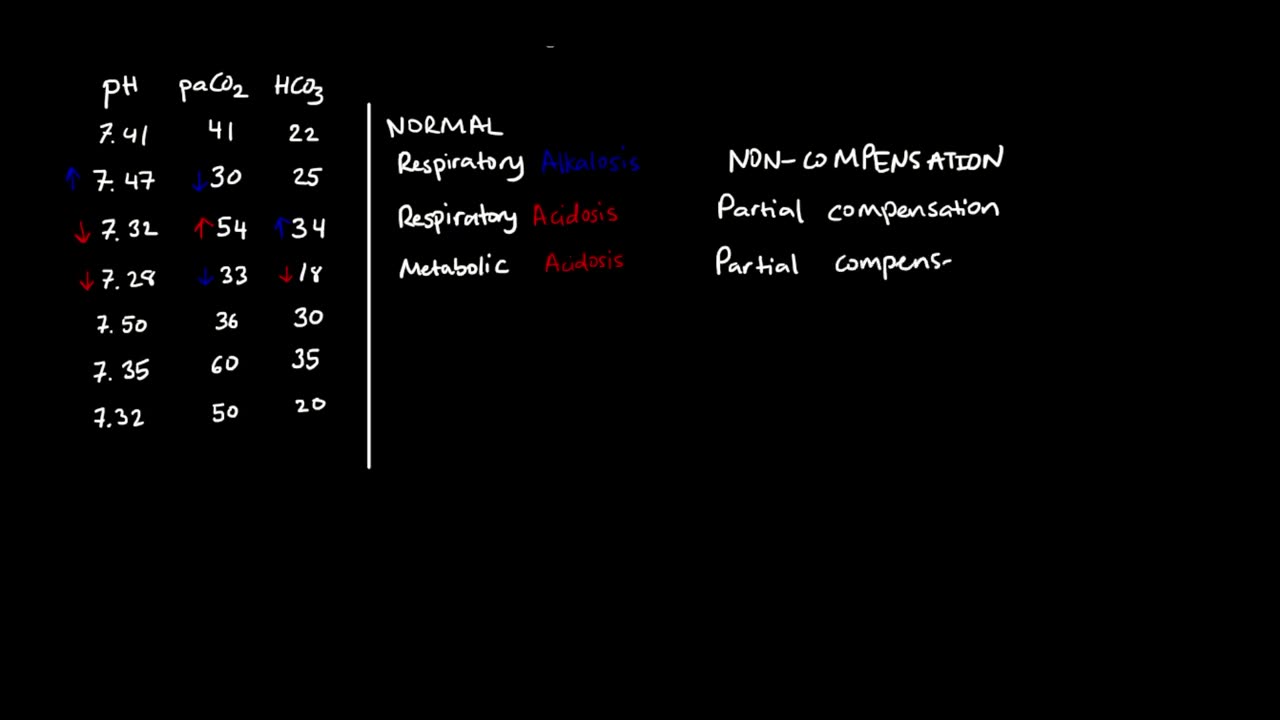 pH paCO2 HCO3
7.41 41 22 NORMAL
↑ 7.47 ↓30 25 Respiratory Alkalosis NON-COMPENSATION
↓ 7.32 ↑54 ↑34 Respiratory Acidosis Partial compensation
↓ 7.28 ↓33 ↓18 Metabolic Acidosis Partial compens-
7.50 36 30
7.35 60 35
7.32 50 20